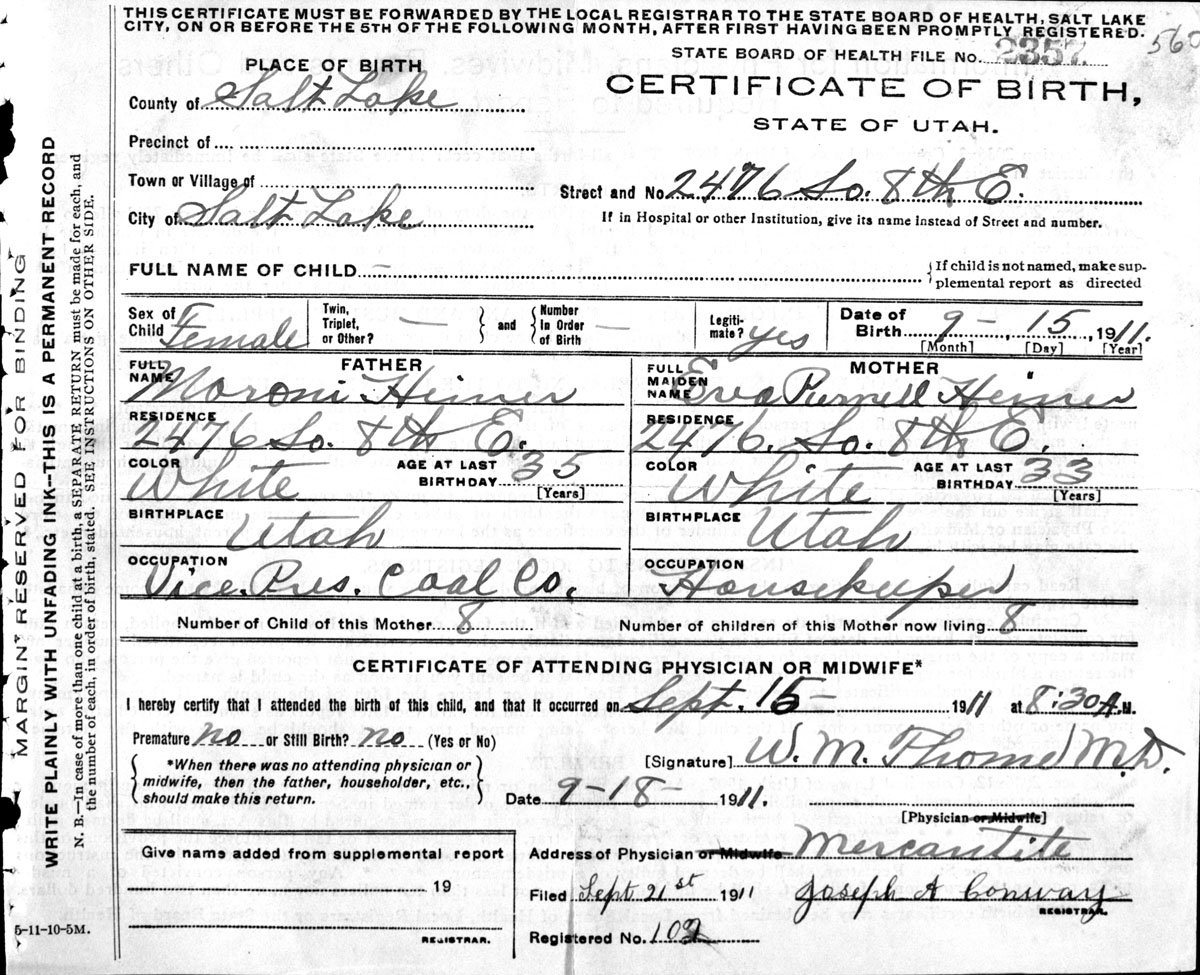 THIS CERTIFICATE MUST BE FORWARDED BY THE LOCAL REGISTRAR TO THE STATE BOARD OF HEALTH, SALT LAKE
CITY, ON OR BEFORE THE 5TH OF THE FOLLOWING MONTH, AFTER FIRST HAVING BEEN PROMPTLY REGISTERED.
STATE BOARD OF HEALTH FILE No. 2357
PLACE OF BIRTH
CERTIFICATE OF BIRTH,
STATE OF UTAH.
County of Salt Lake
Precinct of
Town or Village of
Street and No. 2476 So. 8th E.
City of Salt Lake
If in Hospital or other Institution, give its name instead of Street and number.
FULL NAME OF CHILD –
If child is not named, make sup-
plemental report as directed
Sex of Child Female
Twin, Triplet, or Other? — and Number In Order of Birth —
Legiti- mate? yes
Date of Birth 9 - 15, 1911.
[Month] [Day] [Year]
FATHER
FULL NAME Moroni Heiner
RESIDENCE
2476 So. 8th E.
COLOR White AGE AT LAST BIRTHDAY 35 [Years]
BIRTHPLACE Utah
OCCUPATION
Vice. Pres. Coal Co.
MOTHER
FULL MAIDEN NAME Eva Purnell Heiner
RESIDENCE
2476. So. 8th E.
COLOR White AGE AT LAST BIRTHDAY 33 [Years]
BIRTHPLACE Utah
OCCUPATION
Housekeeper
Number of Child of this Mother 8
Number of children of this Mother now living 8
CERTIFICATE OF ATTENDING PHYSICIAN OR MIDWIFE*
I hereby certify that I attended the birth of this child, and that it occurred on Sept. 15 - 1911 at 8:30 A.M.
Premature no or Still Birth? no (Yes or No)
*When there was no attending physician or
midwife, then the father, householder, etc.,
should make this return.
[Signature] W. M. Thome M.D.
Date 9-18- 1911.
[Physician or Midwife]
Give name added from supplemental report
19
REGISTRAR.
Address of Physician or Midwife Mercantite
Filed Sept 21st 1911 Joseph A Conway
REGISTRAR.
Registered No. 102
5-11-10-5M.
MARGINT RESERVED FOR BINDING
WRITE PLAINLY WITH UNFADING INK--THIS IS A PERMANENT RECORD
N. B.—In case of more than one child at a birth, a SEPARATE RETURN must be made for each, and
the number of each, in order of birth, stated. SEE INSTRUCTIONS ON OTHER SIDE.